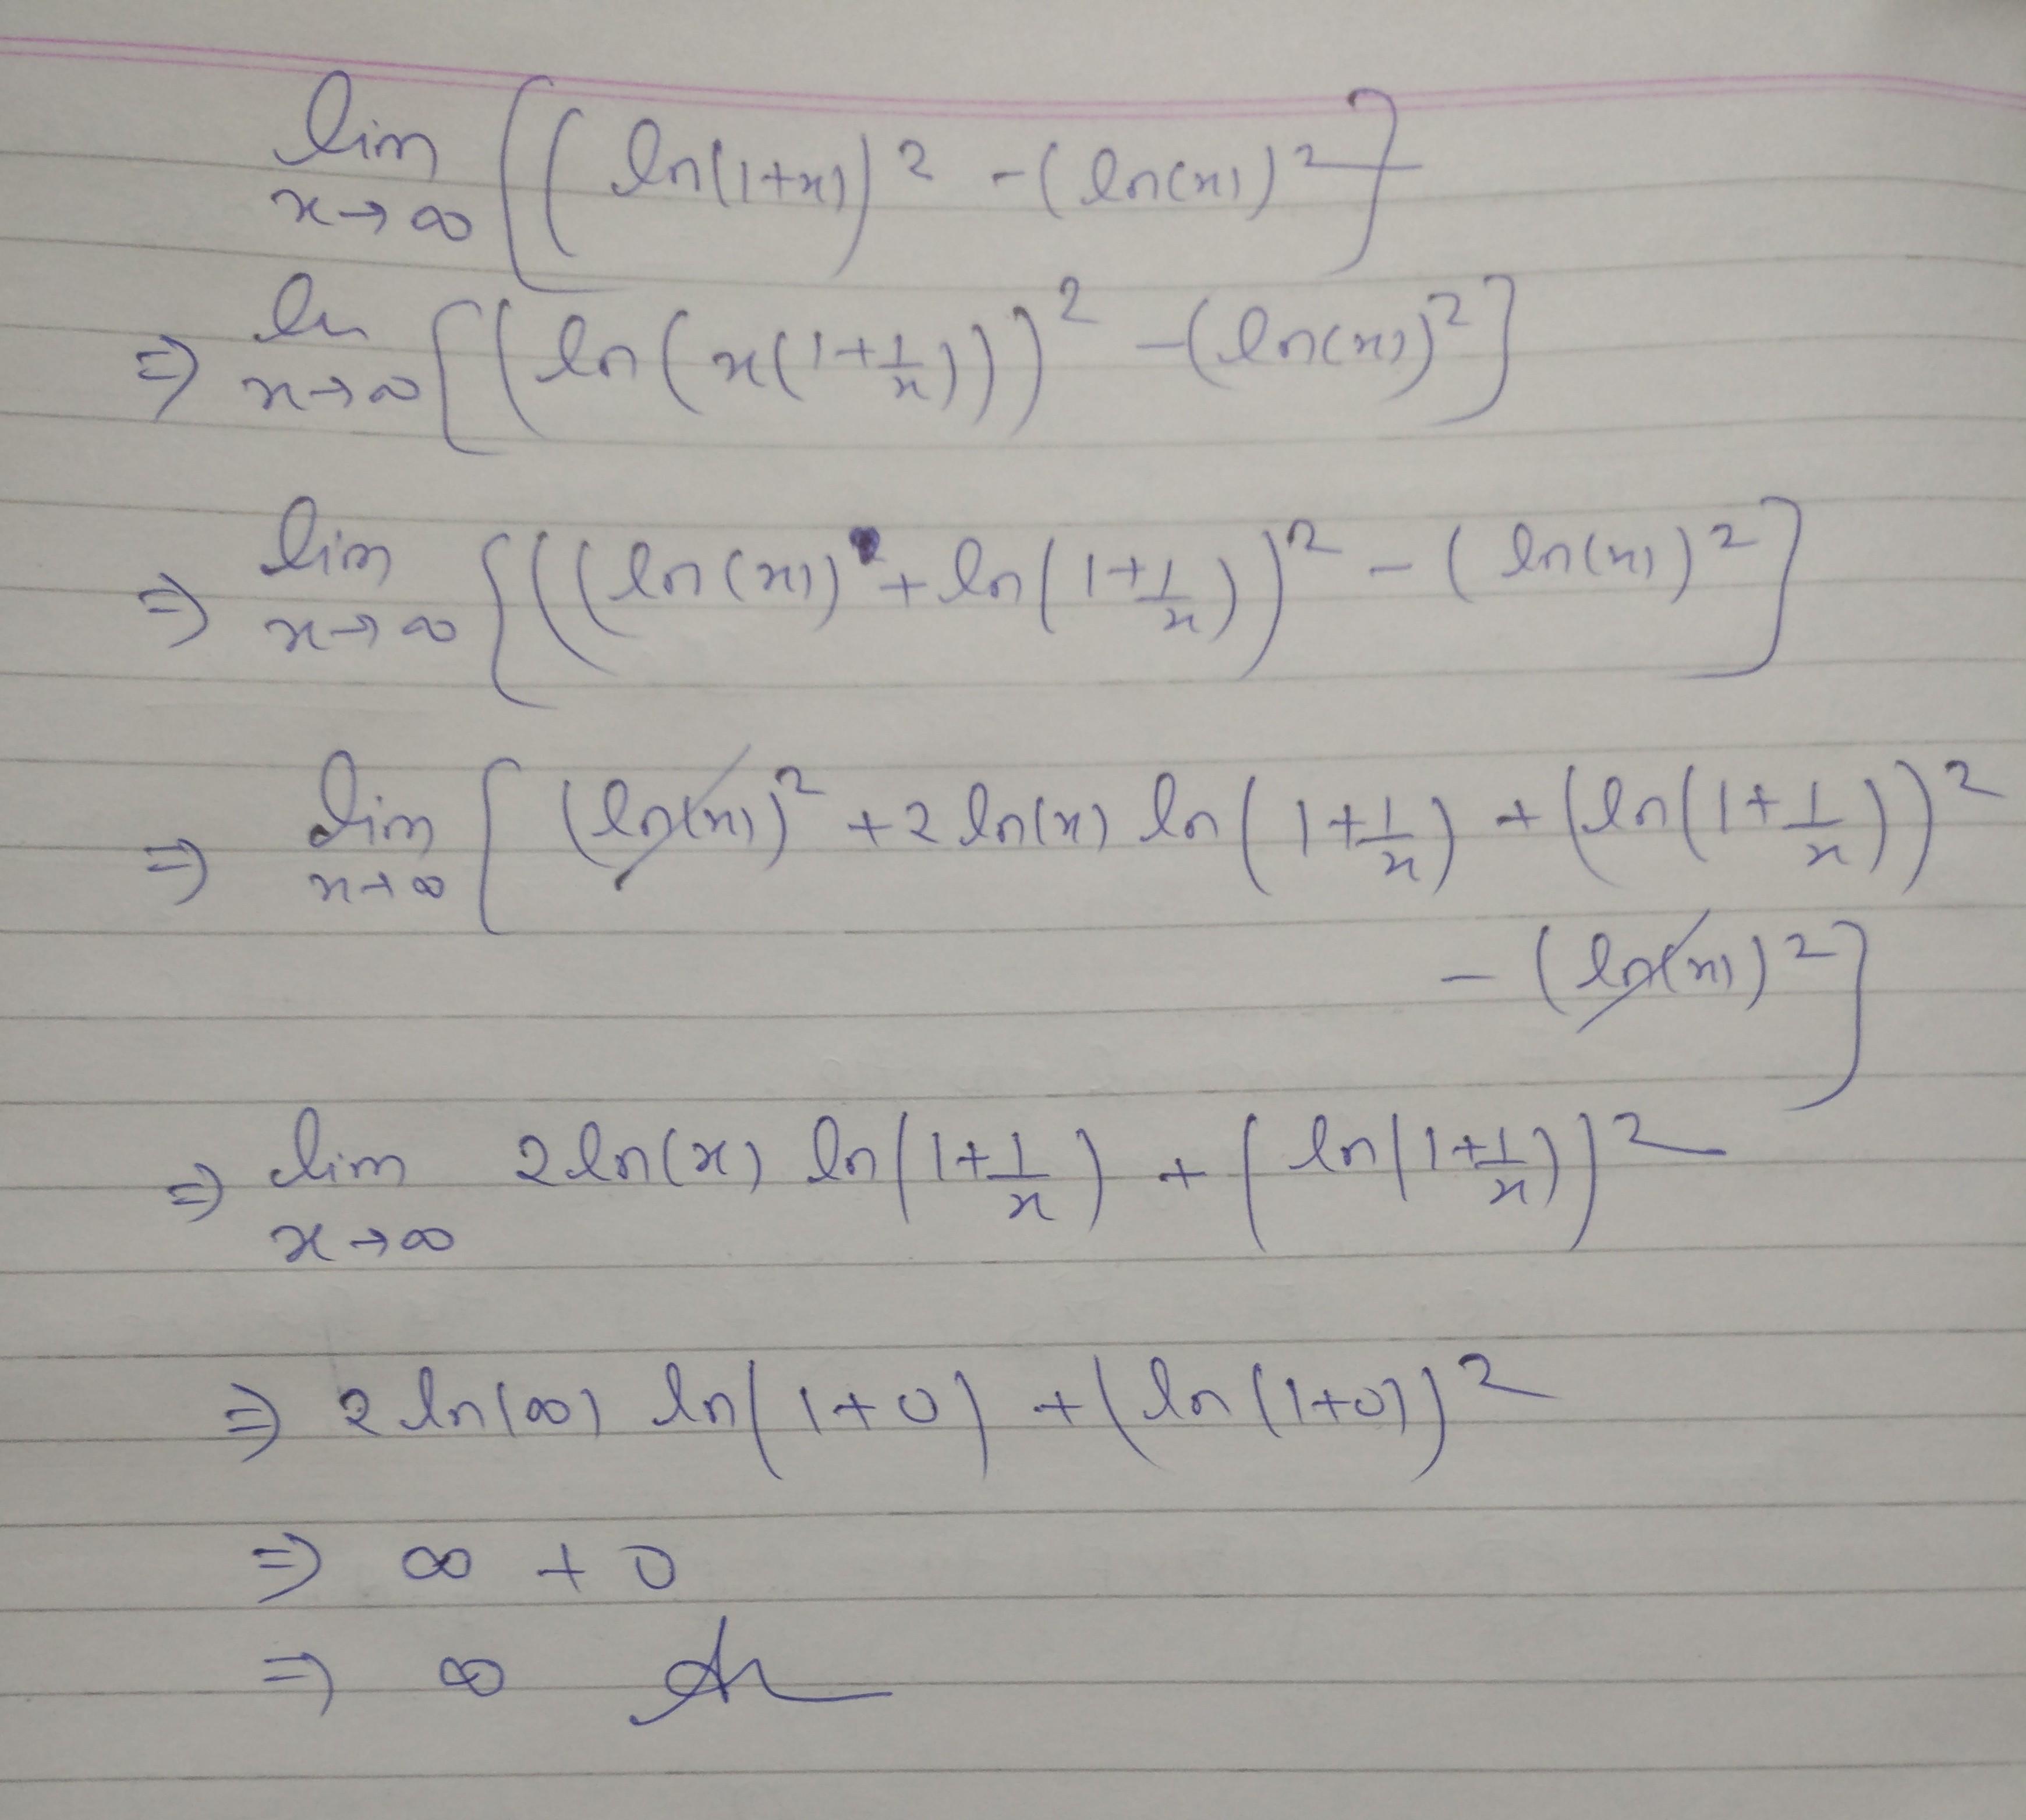 lim x→∞ [(ln(1+x))² - (ln(x))²]
⇒ lim x→∞ [(ln(x(1+1/x)))² - (ln(x))²]
⇒ lim x→∞ [((ln(x)) + ln(1+1/x))² - (ln(x))²]
⇒ lim x→∞ [(ln(x))² + 2 ln(x) ln(1+1/x) + (ln(1+1/x))²
- (ln(x))²]
⇒ lim x→∞ 2 ln(x) ln(1+1/x) + (ln(1+1/x))²
⇒ 2 ln(∞) ln(1+0) + (ln(1+0))²
⇒ ∞ + 0
⇒ ∞